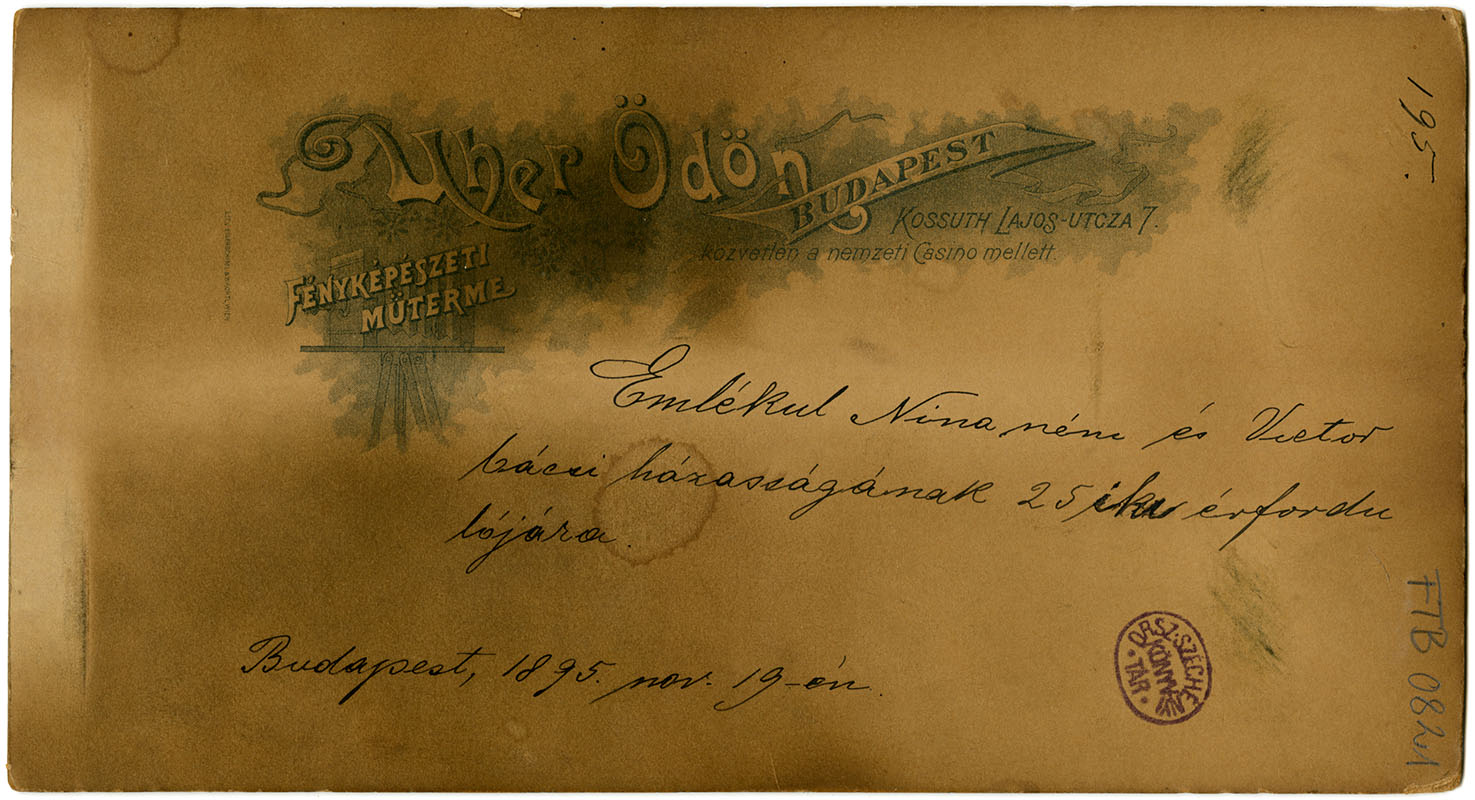 Uher Ödön
BUDAPEST
KOSSUTH LAJOS-UTCZA 7.
közvetlen a nemzeti Casino mellett.
FÉNYKÉPÉSZETI
MŰTERME
Emlékul Nina néni és Victor
bácsi házasságának 25 iku érfordu
lójára.
Budapest, 1895. nov. 19-én.
195.
ORSZ. SZÉCHÉNYI
KÖNYV
TÁR